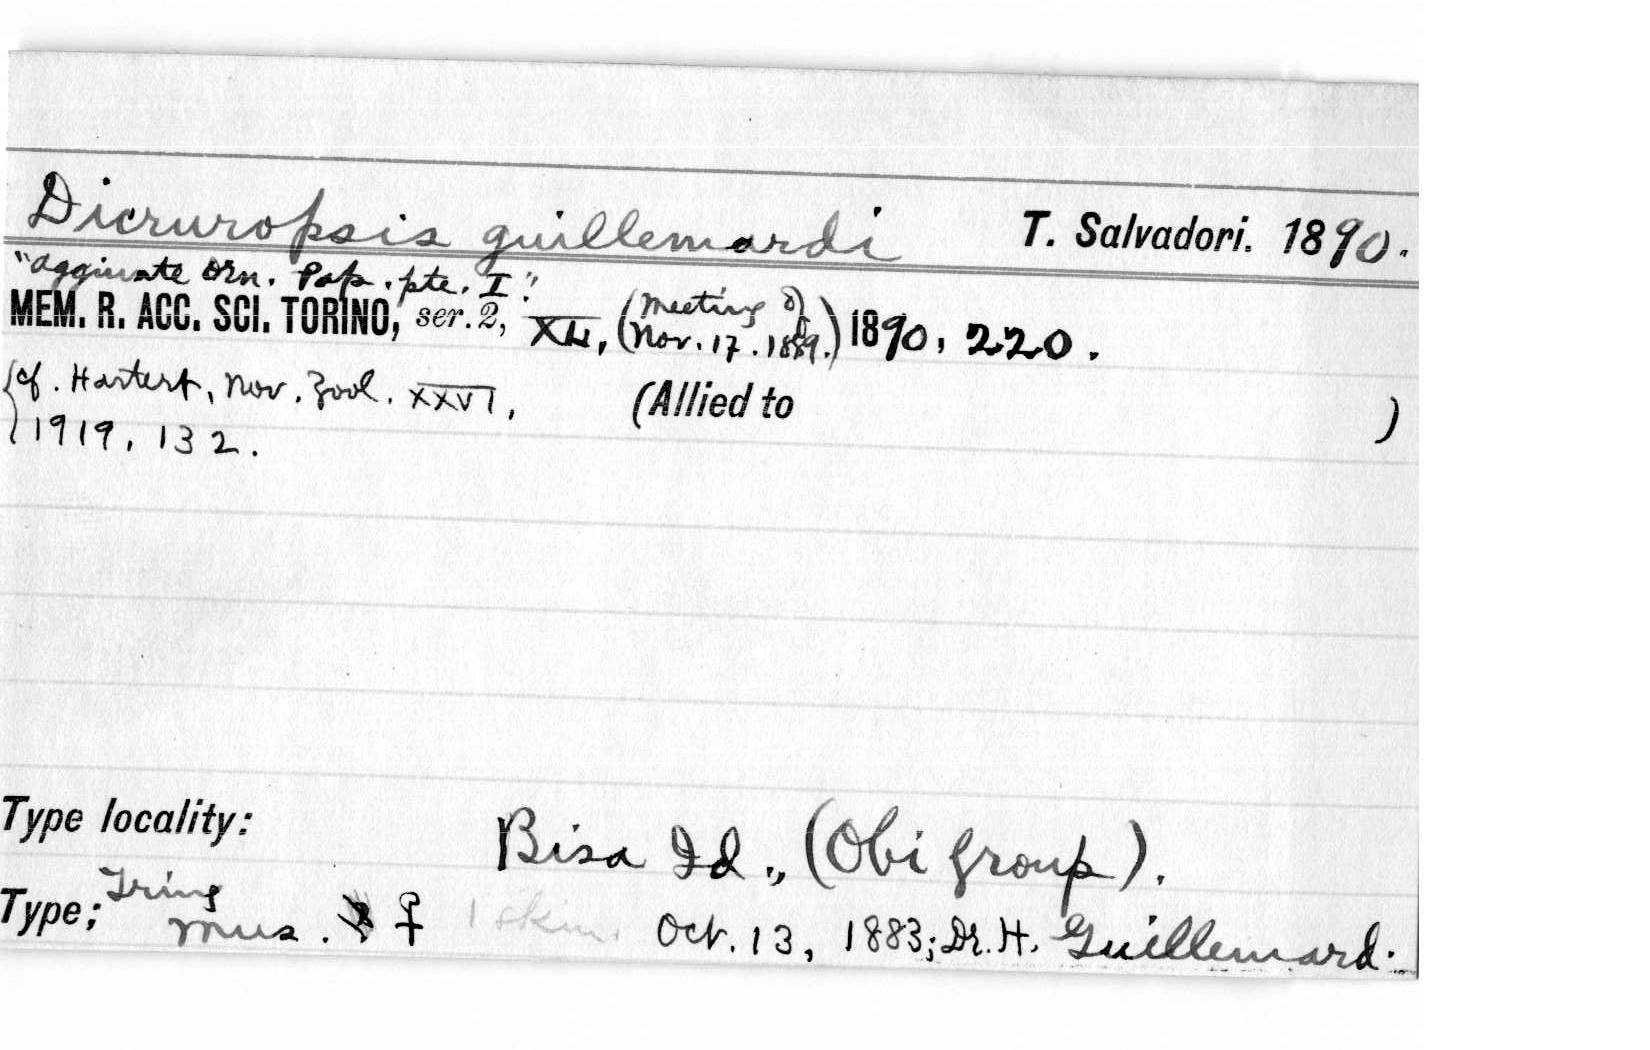 Dicruropsis guillemardi T. Salvadori. 1890.
"Aggiunte Orn. Pap. pte. I."
MEM. R. ACC. SCI. TORINO, ser. 2, XL, (Meeting of Nov. 17. 1889.) 1890, 220.
{cf. Hartert, Nov. Zool. XXVI, (Allied to )
1919, 132.
Type locality: Bisa Id., (Obi Group).
Type; Tring Mus. ♀ 1 skin. Oct. 13, 1883; Dr. H. Guillemard.